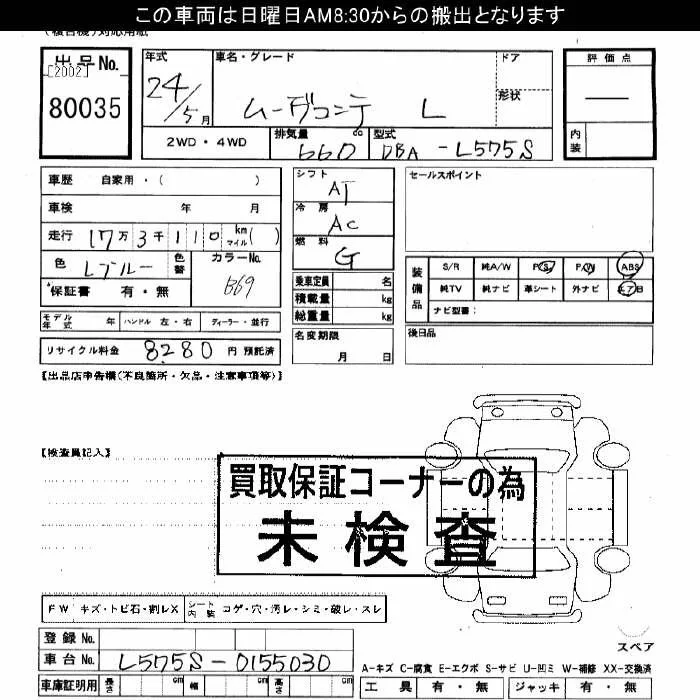 この車両は日曜日AM8:30からの搬出となります
出品No.
[2002]
80035
年式
24/5月
車名・グレード
ムーヴコンテ L
ドア
形状
評価点
内装
2WD・4WD
排気量
660 cc
型式
DBA-L575S
車歴 自家用・( )
車検 年 月
走行 17万3千110 km マイル( )
色 Lブルー
色替
カラーNo.
B69
*保証書 有・無
シフト
AT
冷房
AC
燃料
G
乗車定員 名
積載量 kg
総重量 kg
名変期限
月 日
セールスポイント
装備品
S/R 純A/W P/S P/W ABS
純TV 純ナビ 革シート 外ナビ エアB
ナビ型番:
後日品
モデル年式 年 ハンドル 左・右 ディーラー・並行
リサイクル料金 8280 円 預託済
【出品店申告欄(不良箇所・欠品・注意事項等)】
【検査員記入】
買取保証コーナーの為
未検査
FW キズ・トビ石・割レX シート内装 コゲ・穴・汚レ・シミ・破レ・スレ
登録No.
車台No. L575S-0155030
車庫証明用 長さ cm 幅 cm 高さ cm
スペア
A-キズ C-腐食 E-エクボ S-サビ U-凹ミ W-補修 XX-交換済
工具 有・無 ジャッキ 有・無